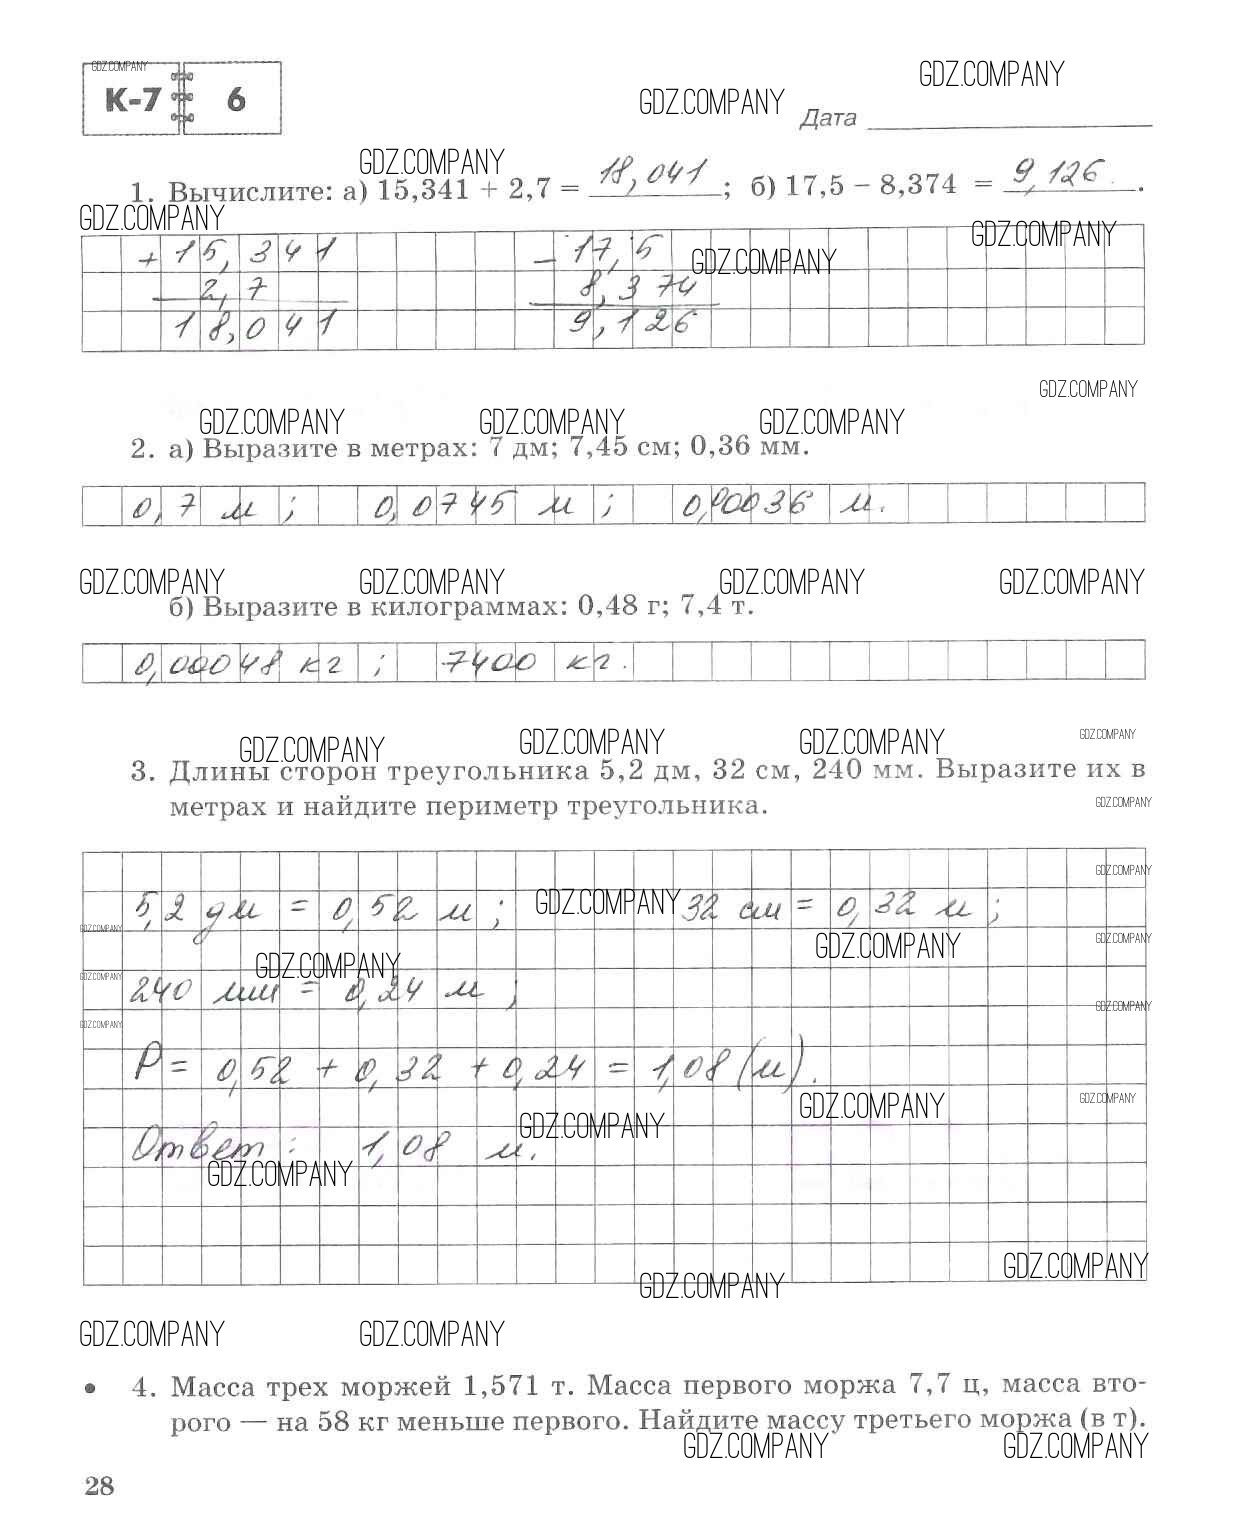 GDZ.COMPANY
К-7 6
GDZ.COMPANY
GDZ.COMPANY
Дата
GDZ.COMPANY
1. Вычислите: а) 15,341 + 2,7 = 18,041; б) 17,5 – 8,374 = 9,126.
GDZ.COMPANY
GDZ.COMPANY
GDZ.COMPANY
+ 15,341 – 17,5
2,7 8,374
18,041 9,126
GDZ.COMPANY
GDZ.COMPANY GDZ.COMPANY GDZ.COMPANY
2. а) Выразите в метрах: 7 дм; 7,45 см; 0,36 мм.
0,7 м; 0,0745 м; 0,00036 м.
GDZ.COMPANY GDZ.COMPANY GDZ.COMPANY GDZ.COMPANY
б) Выразите в килограммах: 0,48 г; 7,4 т.
0,00048 кг; 7400 кг.
GDZ.COMPANY GDZ.COMPANY GDZ.COMPANY GDZ.COMPANY
3. Длины сторон треугольника 5,2 дм, 32 см, 240 мм. Выразите их в
метрах и найдите периметр треугольника.
GDZ.COMPANY
GDZ.COMPANY
5,2 дм = 0,52 м; GDZ.COMPANY 32 см = 0,32 м;
GDZ.COMPANY GDZ.COMPANY GDZ.COMPANY
GDZ.COMPANY GDZ.COMPANY
240 мм = 0,24 м;
GDZ.COMPANY GDZ.COMPANY
P = 0,52 + 0,32 + 0,24 = 1,08 (м).
GDZ.COMPANY GDZ.COMPANY
GDZ.COMPANY
Ответ: 1,08 м.
GDZ.COMPANY
GDZ.COMPANY GDZ.COMPANY
GDZ.COMPANY GDZ.COMPANY
4. Масса трех моржей 1,571 т. Масса первого моржа 7,7 ц, масса вто-
рого — на 58 кг меньше первого. Найдите массу третьего моржа (в т).
GDZ.COMPANY GDZ.COMPANY
28